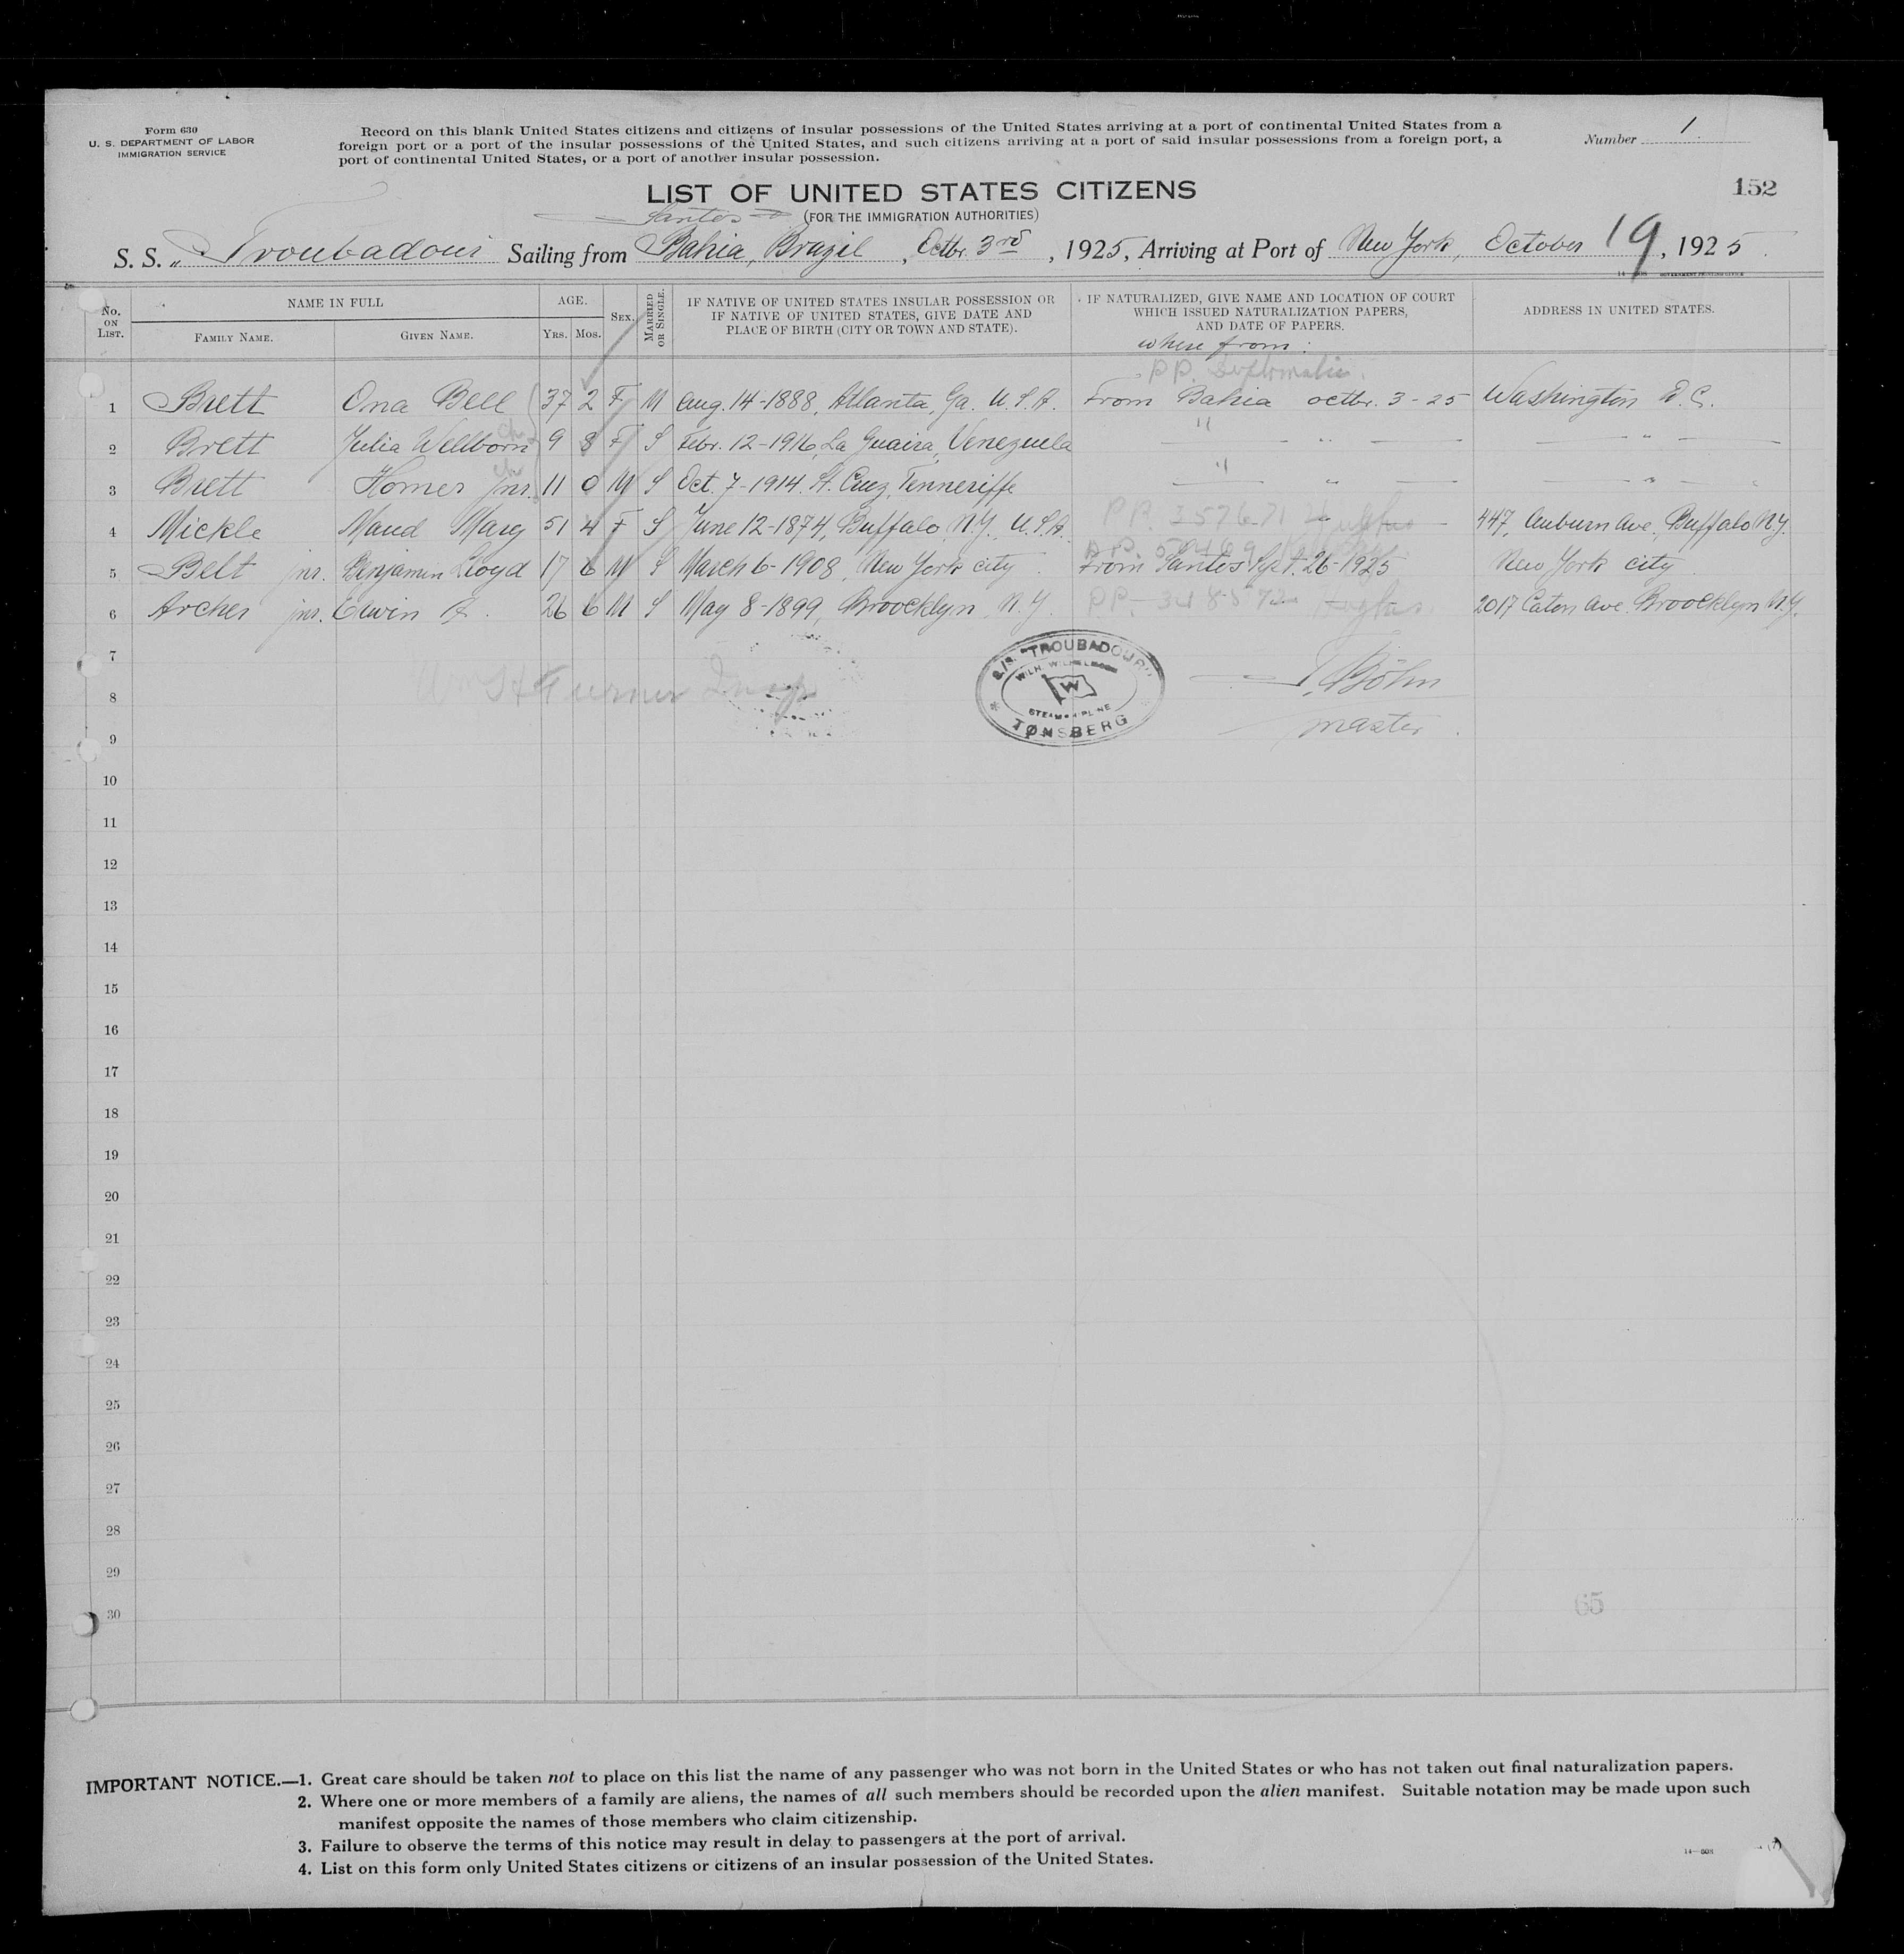 Form 630
U. S. DEPARTMENT OF LABOR
IMMIGRATION SERVICE
Record on this blank United States citizens and citizens of insular possessions of the United States arriving at a port of continental United States from a
foreign port or a port of the insular possessions of the United States, and such citizens arriving at a port of said insular possessions from a foreign port, a
port of continental United States, or a port of another insular possession.
Number 1
152
LIST OF UNITED STATES CITIZENS
Santos (FOR THE IMMIGRATION AUTHORITIES)
S. S. „Troubadour Sailing from Bahia, Brazil, Octbr. 3rd, 1925, Arriving at Port of New York, October 19, 1925.
No. ON LIST. NAME IN FULL AGE. SEX. MARRIED OR SINGLE. IF NATIVE OF UNITED STATES INSULAR POSSESSION OR IF NATIVE OF UNITED STATES, GIVE DATE AND PLACE OF BIRTH (CITY OR TOWN AND STATE). IF NATURALIZED, GIVE NAME AND LOCATION OF COURT WHICH ISSUED NATURALIZATION PAPERS, AND DATE OF PAPERS. ADDRESS IN UNITED STATES.
FAMILY NAME. GIVEN NAME. YRS. MOS.
where from:
PP.
1 Brett Ona Bell 37 2 F M Aug. 14-1888, Atlanta, Ga. U.S.A. From Bahia octbr. 3-25 Washington D.C.
2 Brett Julia Wellborn 9 8 F S Febr. 12-1916, La Guaira, Venezuela — " — — " —
3 Brett Homer jnr. 11 0 M S Oct. 7-1914. St. Cruz, Tenneriffe — " — — " —
PP. 357671 Hughes
4 Mickle Maud Mary 51 4 F S June 12-1874, Buffalo, N.Y. U.S.A. — " — 447, Auburn Ave., Buffalo N.Y.
5 Belt jnr. Benjamin Lloyd 17 6 M S March 6-1908, New York city From Santos Sept. 26-1925 New York city
6 Archer jnr. Edwin 26 6 M S May 8-1899, Broocklyn N.Y. PP. Hughes 2017 Caton Ave. Broocklyn N.Y.
7
8
9
Wm H Turner Insp
S/S. "TROUBADOUR"
WILH. WILHELMSEN
W
STEAMSHIPLINE
TØNSBERG
Böhn
master
10
11
12
13
14
15
16
17
18
19
20
21
22
23
24
25
26
27
28
29
30
65
IMPORTANT NOTICE.—1. Great care should be taken not to place on this list the name of any passenger who was not born in the United States or who has not taken out final naturalization papers.
2. Where one or more members of a family are aliens, the names of all such members should be recorded upon the alien manifest. Suitable notation may be made upon such
manifest opposite the names of those members who claim citizenship.
3. Failure to observe the terms of this notice may result in delay to passengers at the port of arrival.
4. List on this form only United States citizens or citizens of an insular possession of the United States.